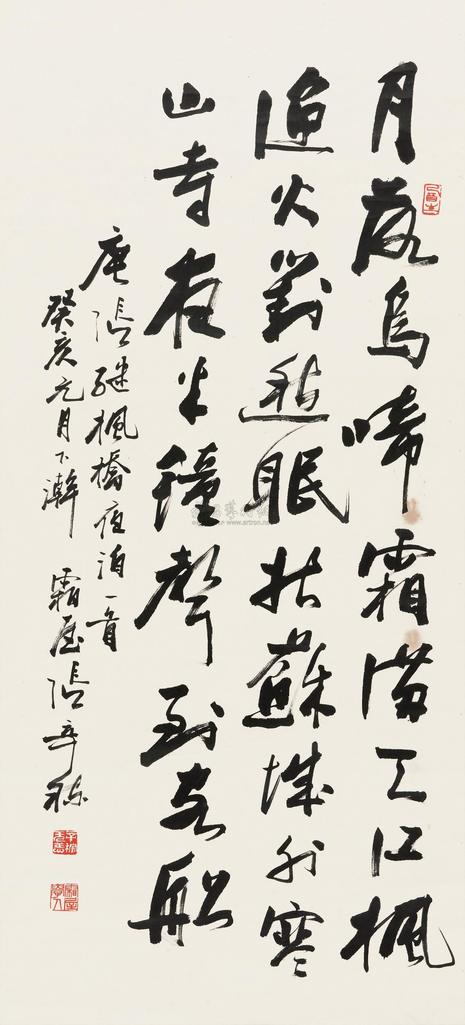 月落烏啼霜滿天江楓
漁火對愁眠姑蘇城外寒
山寺夜半鐘聲到客船
唐張繼楓橋夜泊一首
癸亥元月下澣 霜屋張辛稼